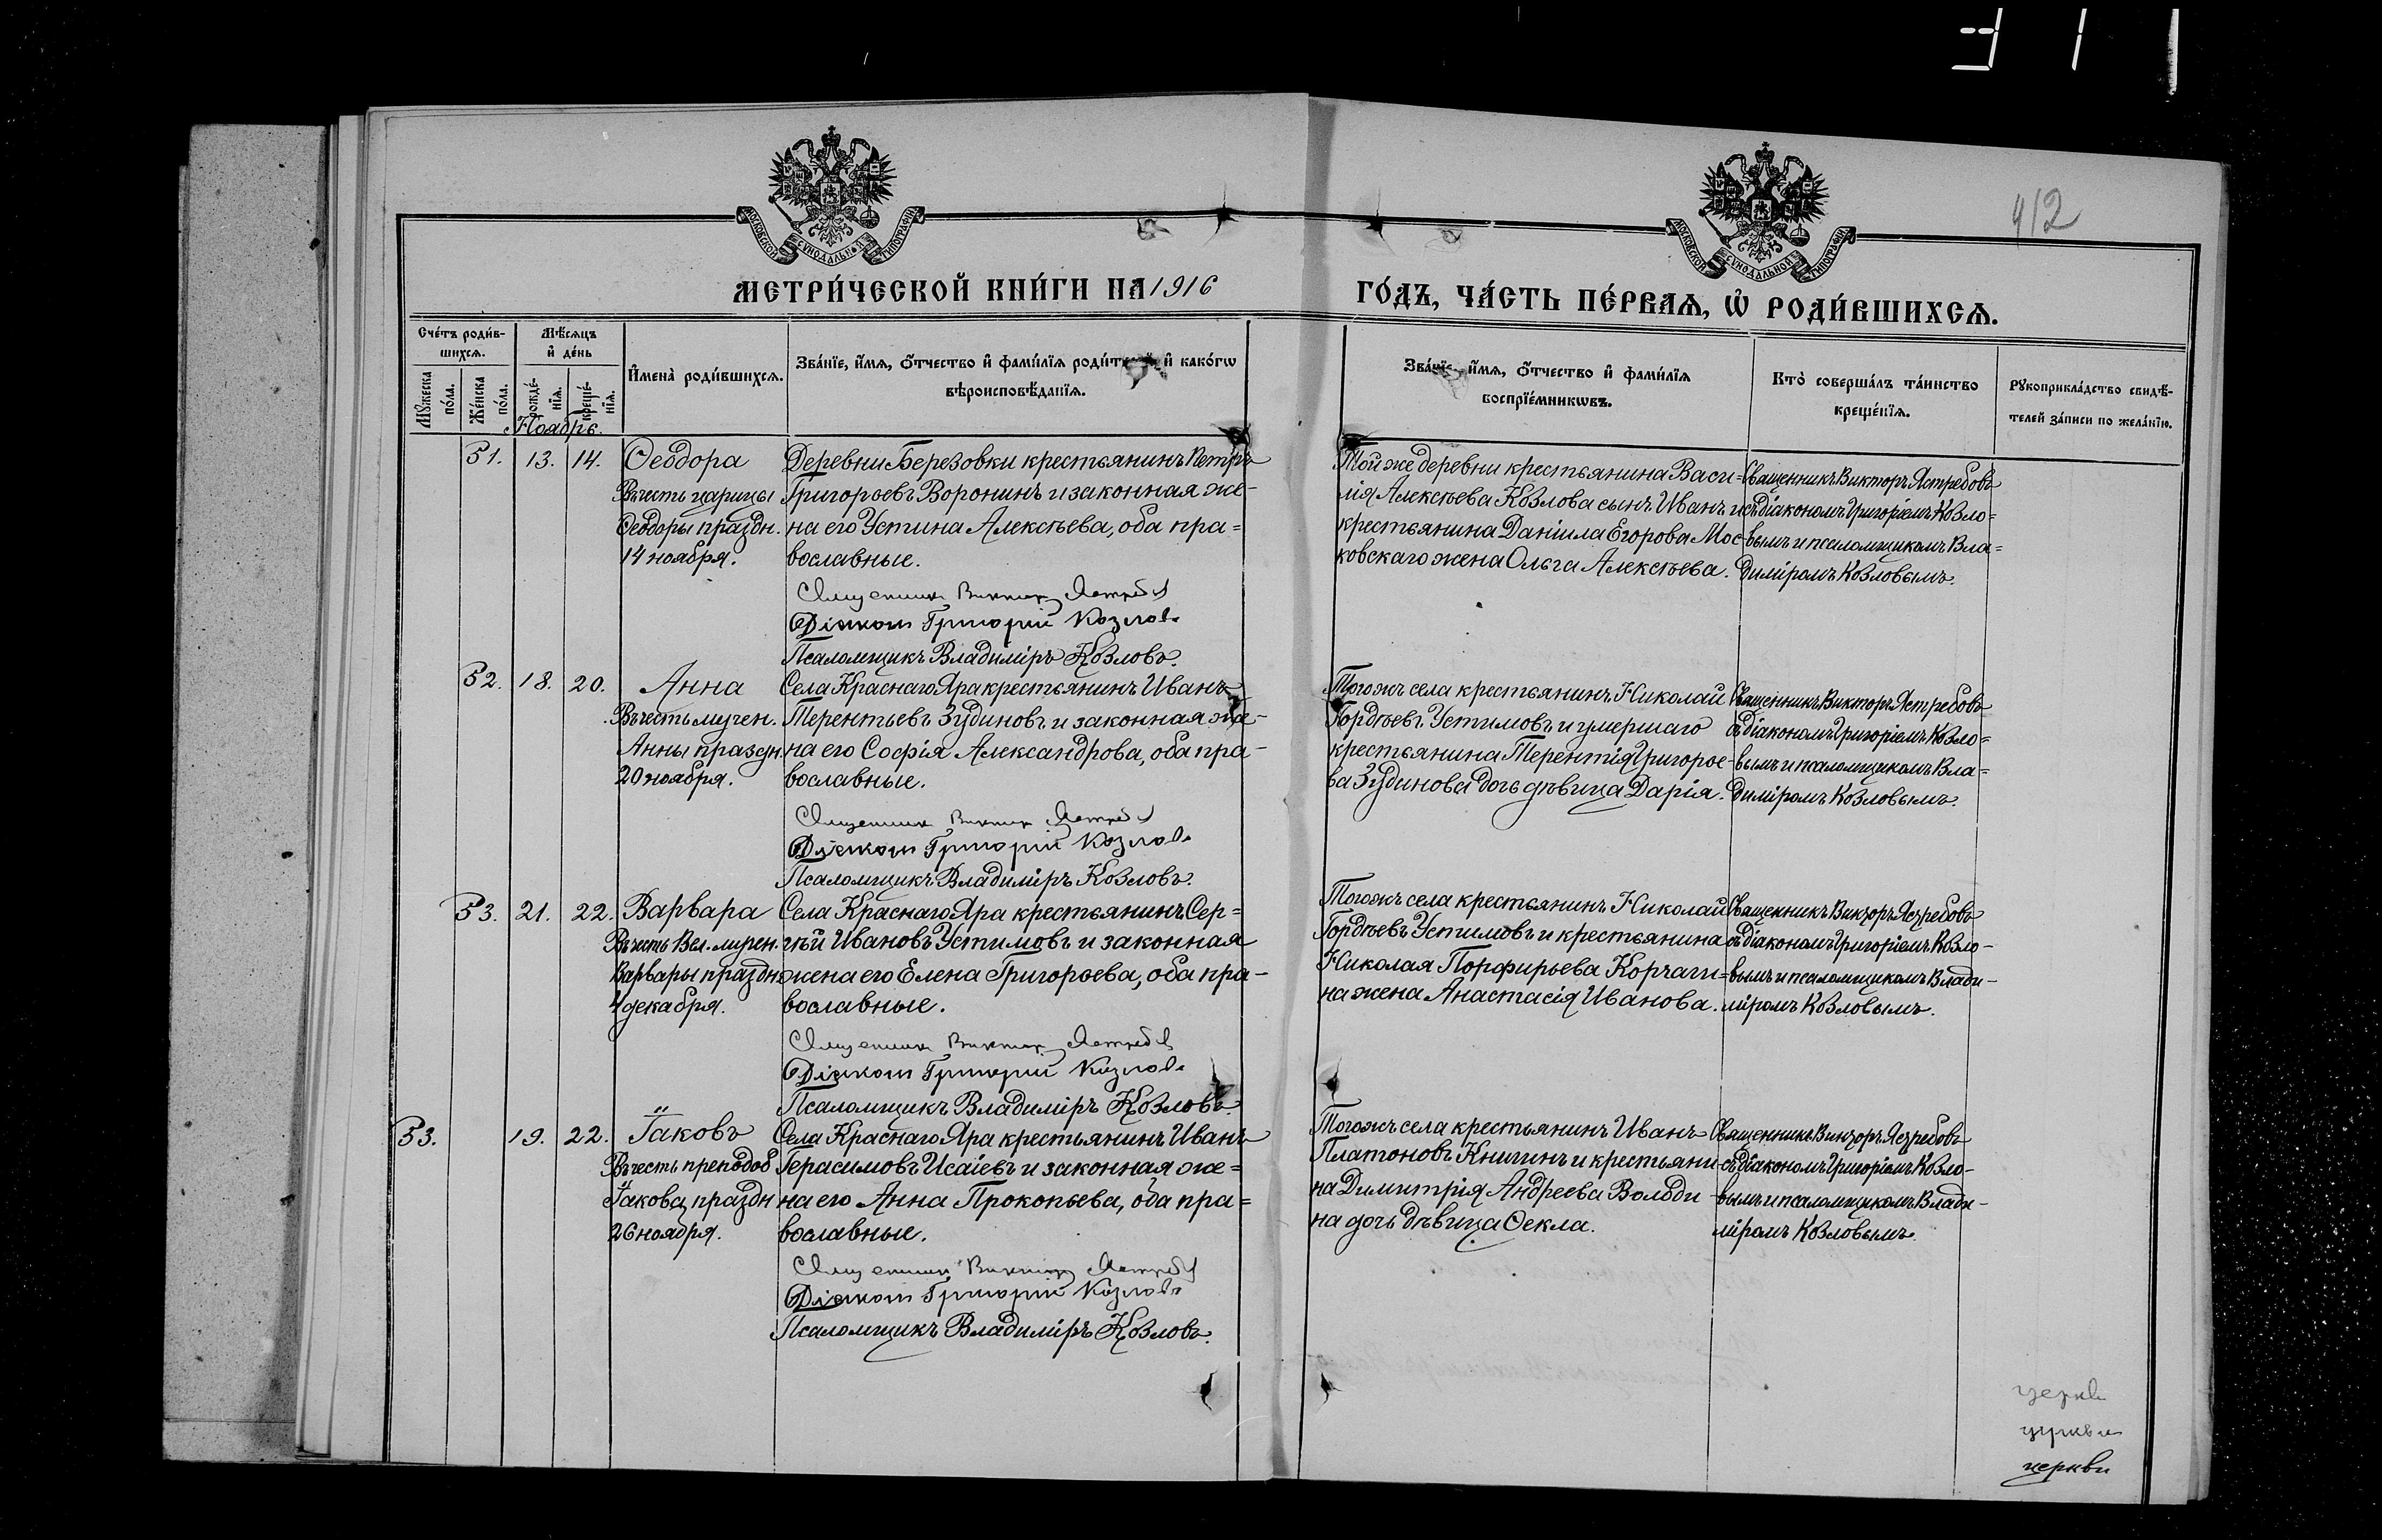 412
МОСКОВСКОЙ СУНОДАЛЬНОЙ ТИПОГРАФІИ
МОСКОВСКОЙ СУНОДАЛЬНОЙ ТИПОГРАФІИ
МЕТРИ́ЧЕСКОЙ КНИ́ГИ НА 1916
ГО́ДЪ, ЧА́СТЬ ПЕ́РВАѦ, Ѡ҆ РОДИ́ВШИХСѦ.
Сче́тъ роди́в-
шихсѧ.
Мѣ́сѧцъ
и҆ де́нь
И҆мена̀ роди́вшихсѧ.
Зва́нїе, и҆́мѧ, ѻ҆́тчество и҆ фами́лїѧ роди́телей, и҆ како́гѡ
вѣроисповѣ́данїѧ.
Мꙋ́жеска
по́ла.
Же́нска
по́ла.
рожде́-
нїѧ.
креще́-
нїѧ.
Ноябрь.
Зва́нїе, и҆́мѧ, ѻ҆́тчество и҆ фами́лїѧ
воспрїе́мникѡвъ.
Кто̀ соверша́лъ та́инство
креще́нїѧ.
Рꙋкоприкла́дство свидѣ́-
телей за́писи по жела́нїю.
51. 13. 14. Ѳеодора
Въ честь царицы
Ѳеодоры праздн.
14 ноября.
Деревни Березовки крестьянинъ Петръ
Григорьевъ Воронинъ и законная же-
на его Устина Алексѣева, оба пра=
вославные.
Священникъ Викторъ Ястребовъ
Діаконъ Григорій Козловъ
Псаломщикъ Владиміръ Козловъ.
Той же деревни крестьянина Васи-
лія Алексѣева Козлова сынъ Иванъ и
крестьянина Даніила Егорова Мос-
ковскаго жена Ольга Алексѣева.
Священникъ Викторъ Ястребовъ
съ діакономъ Григоріемъ Козло=
вымъ и псаломщикомъ Вла=
диміромъ Козловымъ.
52. 18. 20. Анна
Въ честь мучен.
Анны праздн.
20 ноября.
Села Краснаго Яра крестьянинъ Иванъ
Терентьевъ Зудиновъ и законная же-
на его Софія Александрова, оба пра-
вославные.
Священникъ Викторъ Ястребовъ
Діаконъ Григорій Козловъ
Псаломщикъ Владиміръ Козловъ.
Тогожъ села крестьянинъ Николай
Гордѣевъ Устимовъ и умершаго
крестьянина Терентія Григорье-
ва Зудинова дочь дѣвица Дарія.
Священникъ Викторъ Ястребовъ
съ діакономъ Григоріемъ Козло=
вымъ и псаломщикомъ Вла=
диміромъ Козловымъ.
53. 21. 22. Варвара
Въ честь Вел. мучен.
Варвары праздн.
4 декабря.
Села Краснаго Яра крестьянинъ Сер=
гѣй Ивановъ Устимовъ и законная
жена его Елена Григорьева, оба пра-
вославные.
Священникъ Викторъ Ястребовъ
Діаконъ Григорій Козловъ
Псаломщикъ Владиміръ Козловъ.
Тогожъ села крестьянинъ Николай
Гордѣевъ Устимовъ и крестьянина
Николая Порфирьева Корчаги=
на жена Анастасія Иванова.
Священникъ Викторъ Ястребовъ
съ діакономъ Григоріемъ Козло-
вымъ и псаломщикомъ Влади-
міромъ Козловымъ.
53. 19. 22. Іаковъ
Въ честь преподоб
Іакова праздн
26 ноября.
Села Краснаго Яра крестьянинъ Иванъ
Герасимовъ Исаіевъ и законная же=
на его Анна Прокопьева, оба пра=
вославные.
Священникъ Викторъ Ястребовъ
Діаконъ Григорій Козловъ
Псаломщикъ Владиміръ Козловъ.
Тогожъ села крестьянинъ Иванъ
Платоновъ Книгинъ и крестьяни-
на Димитрія Андреева Володи-
на дочь дѣвица Ѳекла.
Священникъ Викторъ Ястребовъ
съ діакономъ Григоріемъ Козло-
вымъ и псаломщикомъ Влади-
міромъ Козловымъ.
церкви
церкви
церкви